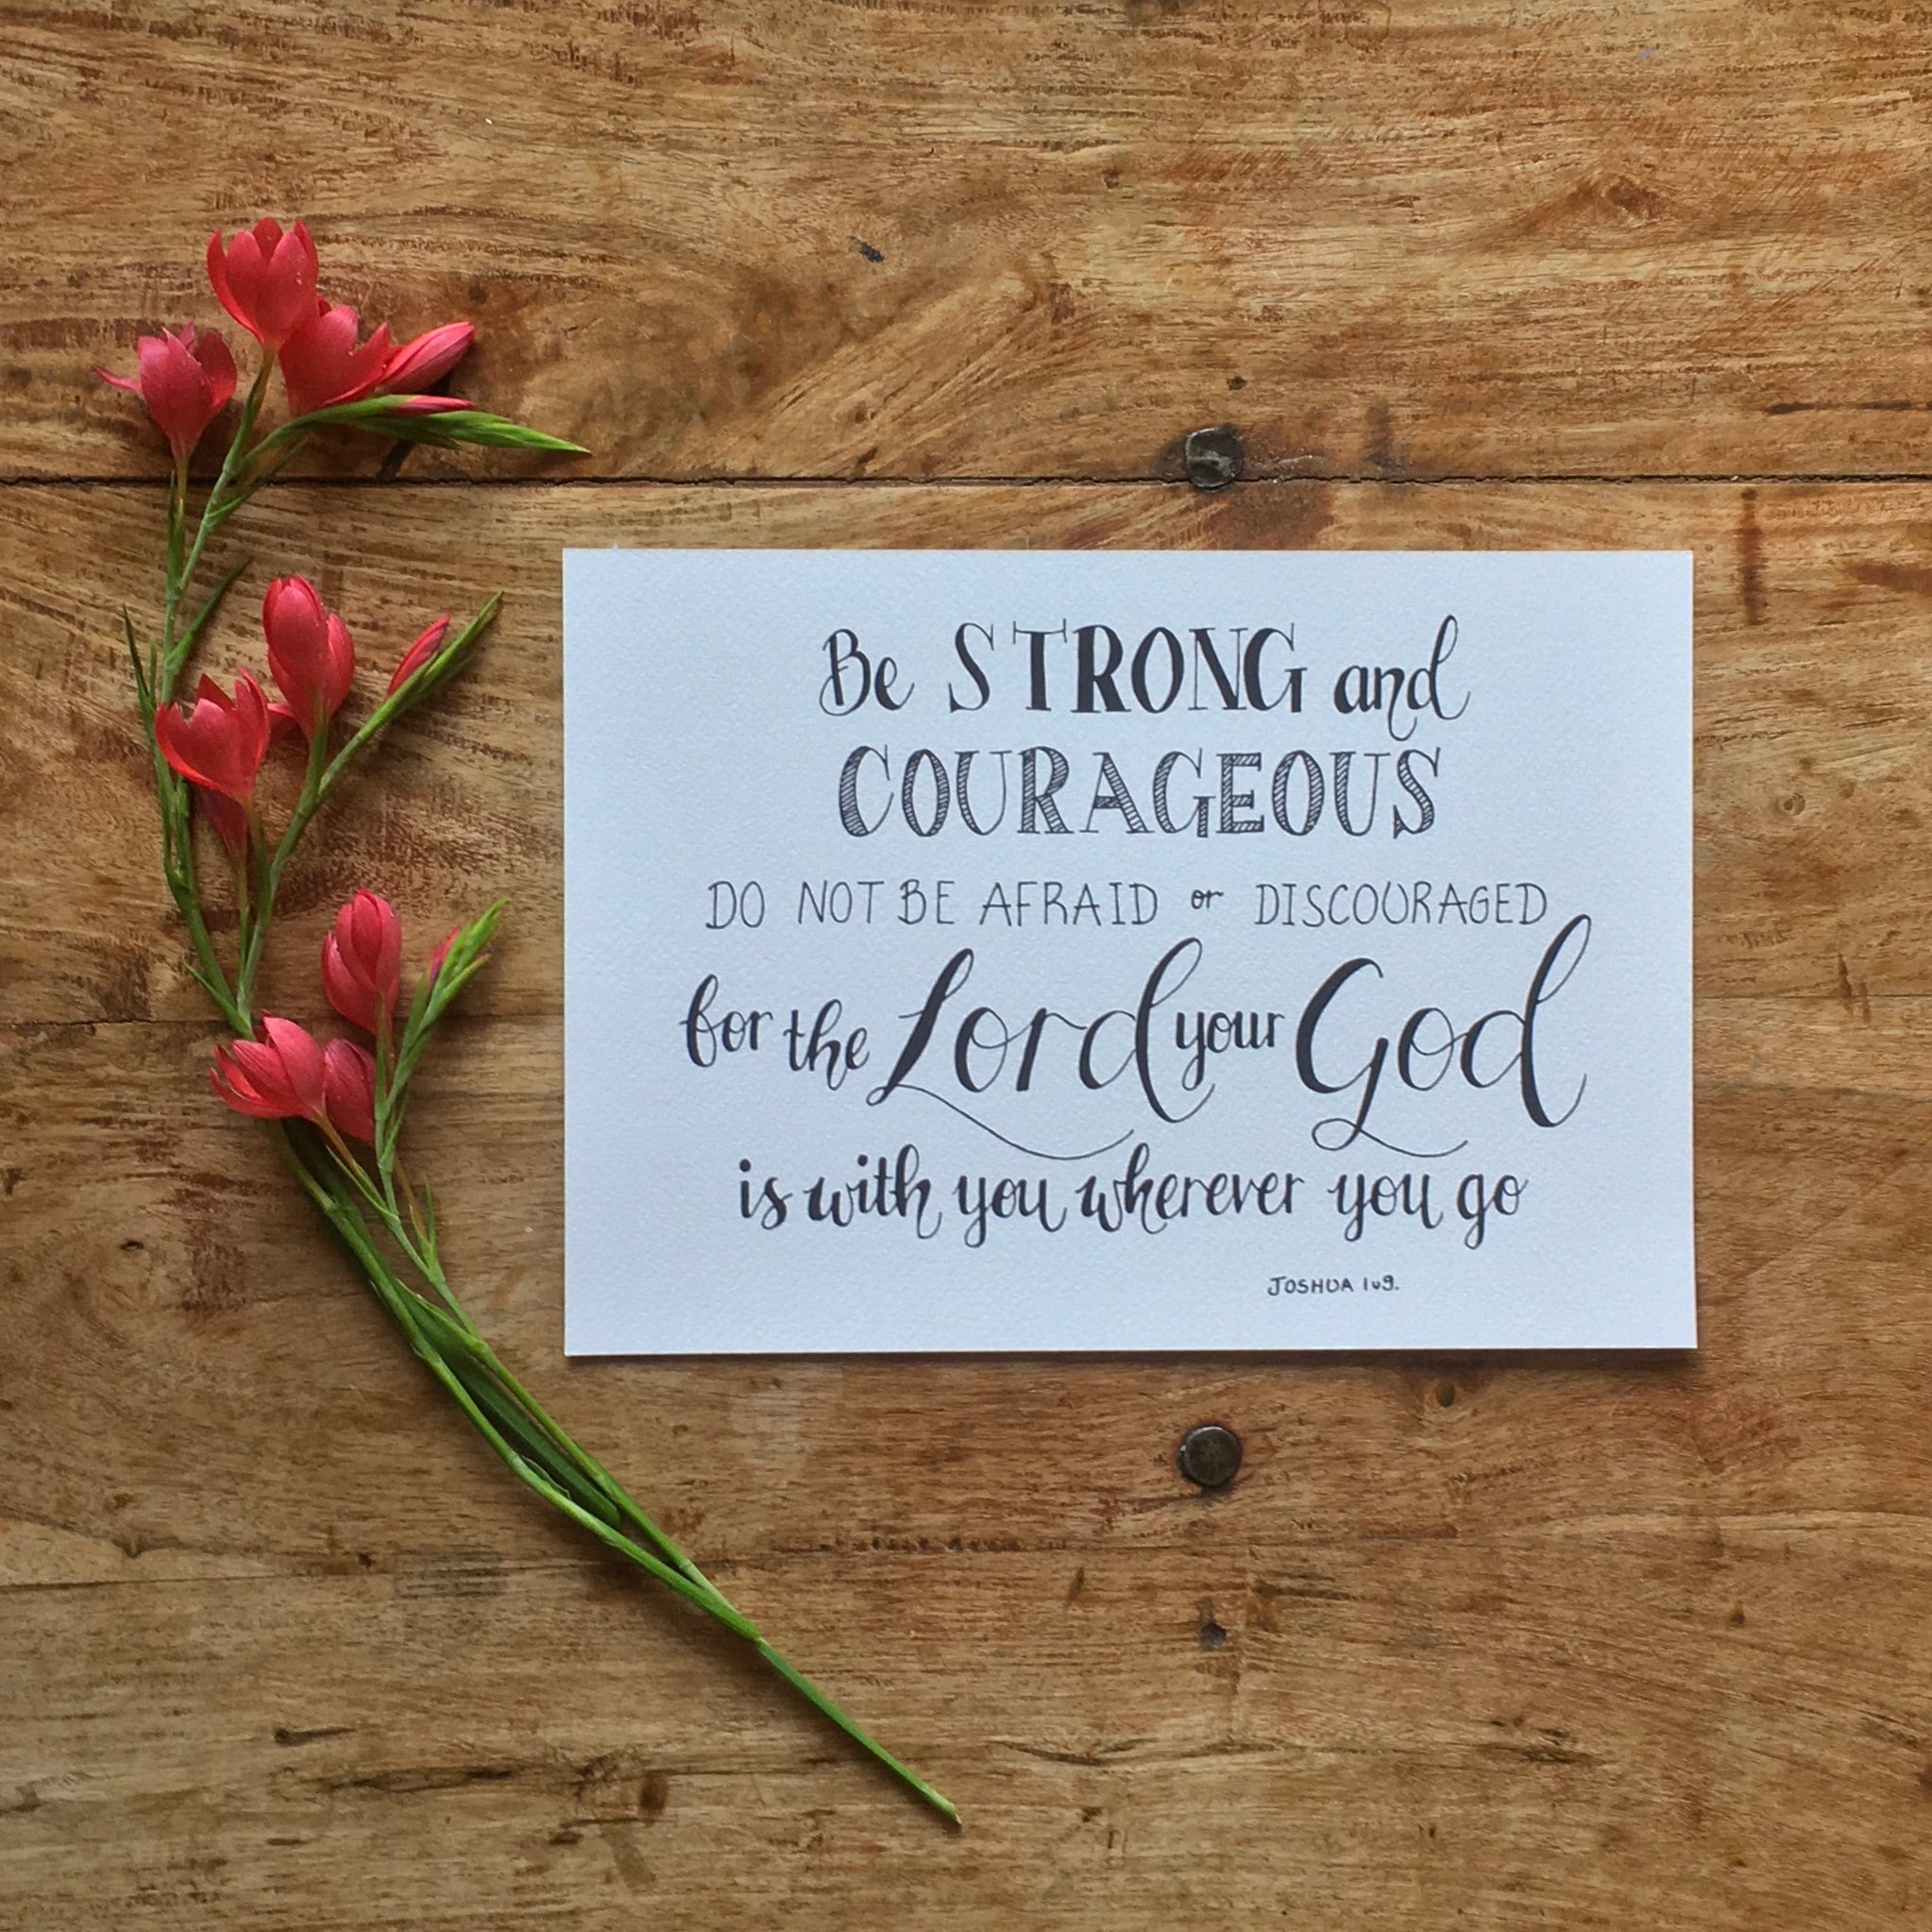 Be STRONG and
COURAGEOUS
DO NOT BE AFRAID or DISCOURAGED
for the Lord your God
is with you wherever you go
JOSHUA 1v9.